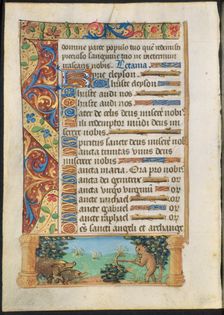 domine parce populo tuo quē redemisti
precioso sanguine tuo ne in eternum
irascaris nobis. Letania.
Kyrie eleyson
Christe eleyson
Christe audi nos
Pater de celis deus miserere nobis
Fili redemptor mundi deus miserere
nobis
Spiritus sancte deus miserere
nobis
Sancta trinitas unus deus
miserere nobis
Sancta maria. Ora pro nobis
Sancta dei genitrix or
Sancta virgo virginū or
Sancte michael or
Sancte gabriel or
Sancte raphael or
Oēs sancti angeli et archange